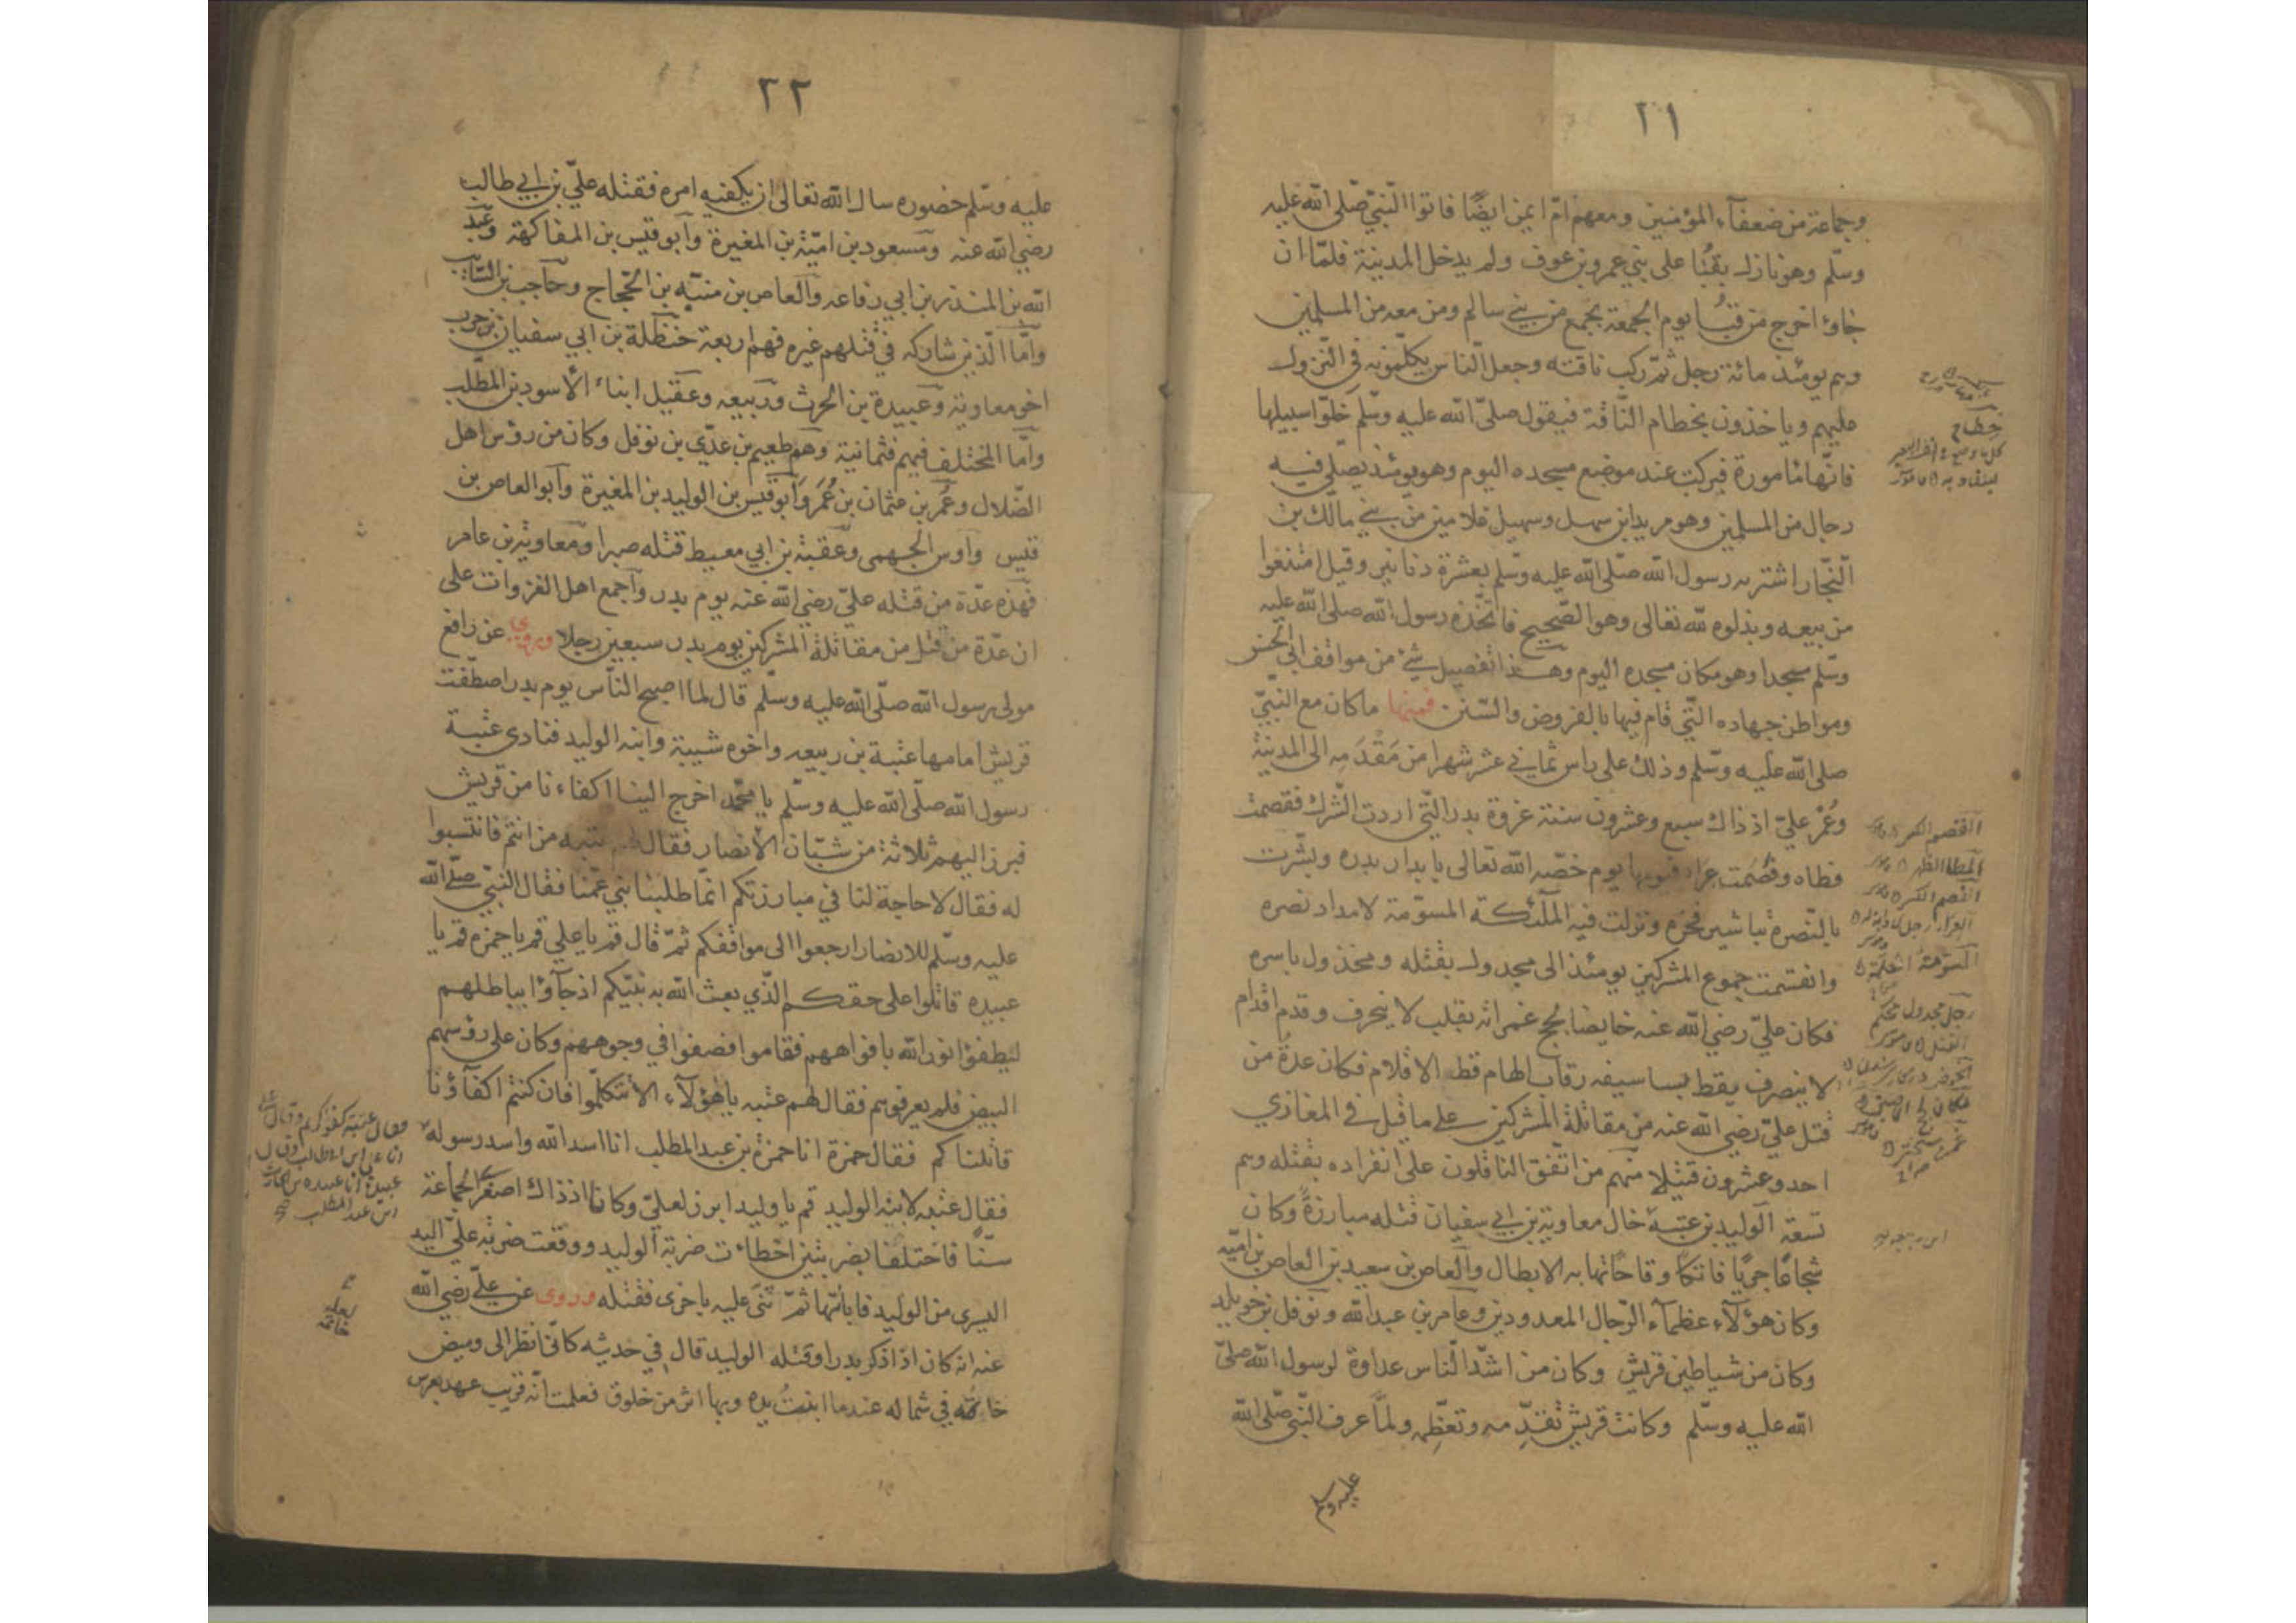 ٢١
وجماعة من ضعفاء المؤمنين ومعهم امّ ايمن ايضًا فاتوا النّبيّ صلّى الله عليه
وسلّم وهو نازل بقُبا على بني عمرو بن عوف ولم يدخل المدينة فلمّا ان
جاؤا خرج من قُبا يوم الجمعة بجمع من بني سالم ومن معه من المسلمين
وهم يومئذ مائة رجل ثمّ ركب ناقته وجعل النّاس يكلّمونه في النّزول
عليهم وياخذون بخطام النّاقة فيقول صلّى الله عليه وسلّم خلّوا سبيلها
فانّها مامورة فبركت عند موضع مسجده اليوم وهو يومئذ يصلّي فيه
رجال من المسلمين وهو مربد ابن سهل وسهيل غلامين من بني مالك بن
النّجّار اشتريه رسول الله صلّى الله عليه وسلّم بعشرة دنانير وقيل امتنعوا
من بيعه وبذلوه لله تعالى وهو الصّحيح فاتّخذه رسول الله صلى الله عليه
وسلّم مسجدا وهو مكان مسجده اليوم وهذا تفصيل شئ من مواقف ابي الحسن
ومواطن جهاده الّتي قام فيها بالفروض والسّنن فمنها ما كان مع النّبيّ
صلى الله عليه وسلّم وذلك على راس ثماني عشر شهرا من مَقْدَمِه الى المدينة
وعُمْر عليّ اذ ذاك سبع وعشرون سنة غزوة بدر الّتي اردت الشّرك فقصمت
مطاه وقصمت عرا يوم خصّه الله تعالى بابدار بدره وبشّرت
بالنّصرة تباشير فجره ونزلت فيه الملائكة المسوّمة لامداد نصره
وانقسمت جموع المشركين يومئذ الى مجدول بقتله ومخذول باسره
فكان عليّ رضي الله عنه خايضا لجج غمراته بقلب لا ينحرف وقدم اقدام
لا ينصرف يقط بسبا سيفه رقاب الهام قط الاقلام فكان عدة من
قتل عليّ رضي الله عنه من مقاتلة المشركين على ما قيل في المغازي
احد وعشرون قتيلا منهم من اتّفق الناقلون على انفراده بقتله وهم
تسعة الوليد بن عتبة خال معاوية بن ابي سفيان قتله مبارزةً وكان
شجاعًا جريًا فاتكًا وقاحًا تهابه الابطال والعاص بن سعيد بن العاص بن اميّه
وكان هؤلاء عظماء الرّجال المعدودين وعامر بن عبد الله ونوفل بن خويلد
وكان من شياطين قريش وكان من اشدّ النّاس عداوة لرسول الله صلّى
الله عليه وسلّم وكانت قريش تقدّمه وتعظّمه ولمّا عرف النّبيّ صلّى الله
عليه وسلم
خطام
القصم الكسر
المطا الظهر
القصم الكسر
رجل مجدول محكم
القتل
٢٢
عليه وسلّم حضوره سال الله تعالى ان يكفيه امره فقتله عليّ بن ابي طالب
رضي الله عنه ومسعود بن اميّة بن المغيرة وابو قيس بن المفاكهة وعبد
الله بن المنذر بن ابي رفاعه والعاص بن منبّه بن الحجّاج وحاجب بن السّائب
وامّا الّذين شاركه في قتلهم غيره فهم اربعة حنظلة بن ابي سفيان بن حرب
اخو معاوية وعبيدة بن الحرث وربيعه وعقيل ابناء الأسود بن المطّلب
وامّا المختلف فيهم فثمانية وهم طعيم بن عدّي بن نوفل وكان من رؤس اهل
الضّلال وعُمَر بن عثمان بن عُمَر وابو قيس بن الوليد بن المغيرة وابو العاص بن
قيس واوس الجهمي وعقبة بن ابي معيط قتله صبرا ومعاوية بن عامر
فهذه عدّة من قتله عليّ رضي الله عنه يوم بدر واجمع اهل الغزوات على
ان عدّة من قتل من مقاتلة المشركين يوم بدر سبعين رجلا وروي عن رافع
مولى رسول الله صلّى الله عليه وسلّم قال لما اصبح النّاس يوم بدر اصطفّت
قريش امامها عتبة بن ربيعه واخوه شيبة وابنه الوليد فنادى عتبة
رسول الله صلّى الله عليه وسلّم يا محمّد اخرج الينا اكفاءنا من قريش
فبرز اليهم ثلاثة من شبّان الأنصار فقال لهم عتبه من انتم فانتسبوا
له فقال لا حاجة لنا في مبارزتكم انّما طلبنا بني عمّنا فقال النّبيّ صلّى الله
عليه وسلّم للانصار ارجعوا الى مواقفكم ثمّ قال قم يا علي قم يا حمزه قم يا
عبيده قاتلوا على حقكم الّذي بعث الله به نبيّكم اذ جاؤا بباطلهم
ليطفؤا نور الله بافواههم فقاموا فصفوا في وجوههم وكان على رؤسهم
البيض فلم يعرفوهم فقال لهم عتبه يا هؤلاء الا تتكلّموا فان كنتم اكفآؤنا
قاتلناكم فقال حمزة انا حمزة بن عبد المطلب انا اسد الله واسد رسوله
فقال عتبه لابنه الوليد قم يا وليد ابرز لعليّ وكانا اذ ذاك اصغر الجماعة
سنًّا فاختلفا بضربتين اخطاءت ضربة الوليد ووقعت ضربة عليّ اليد
اليسرى من الوليد فابانتها ثمّ ثنّى عليه باخرى فقتله وروى عن عليّ رضي الله
عنه انه كان اذا ذكر بدرا وقتله الوليد قال في حديثه كانّي انظر الى وميض
خاتمه في شماله عندما ابنتُ يده وبها اثر من خلوق فعلمت انّه قريب عهد بعرس
فقال عتبة كفو كريم وقال علي
انا علي ابن ابي طالب وقال
عبيدة انا عبيده بن الحارث
ابن عبد المطلب صح